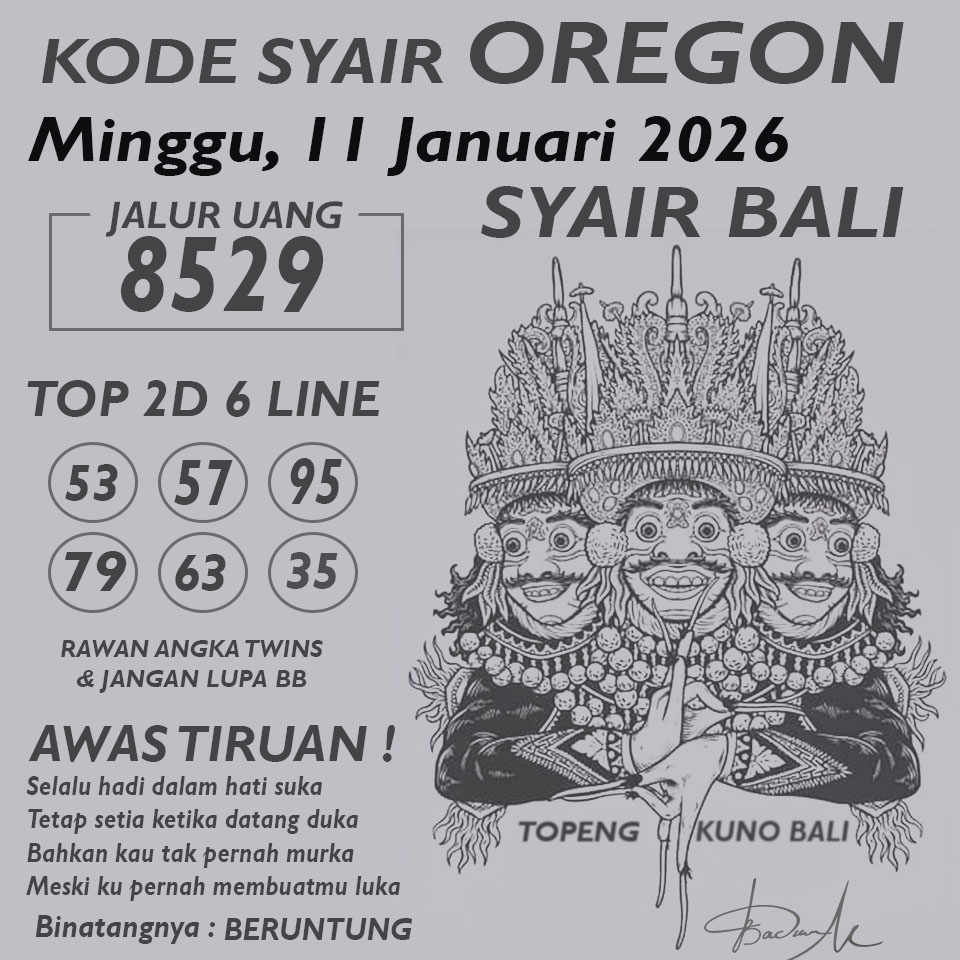 KODE SYAIR OREGON
Minggu, 11 Januari 2026
SYAIR BALI
JALUR UANG
8529
TOP 2D 6 LINE
53 57 95
79 63 35
RAWAN ANGKA TWINS
& JANGAN LUPA BB
AWAS TIRUAN !
Selalu hadi dalam hati suka
Tetap setia ketika datang duka
Bahkan kau tak pernah murka
Meski ku pernah membuatmu luka
Binatangnya : BERUNTUNG
TOPENG KUNO BALI